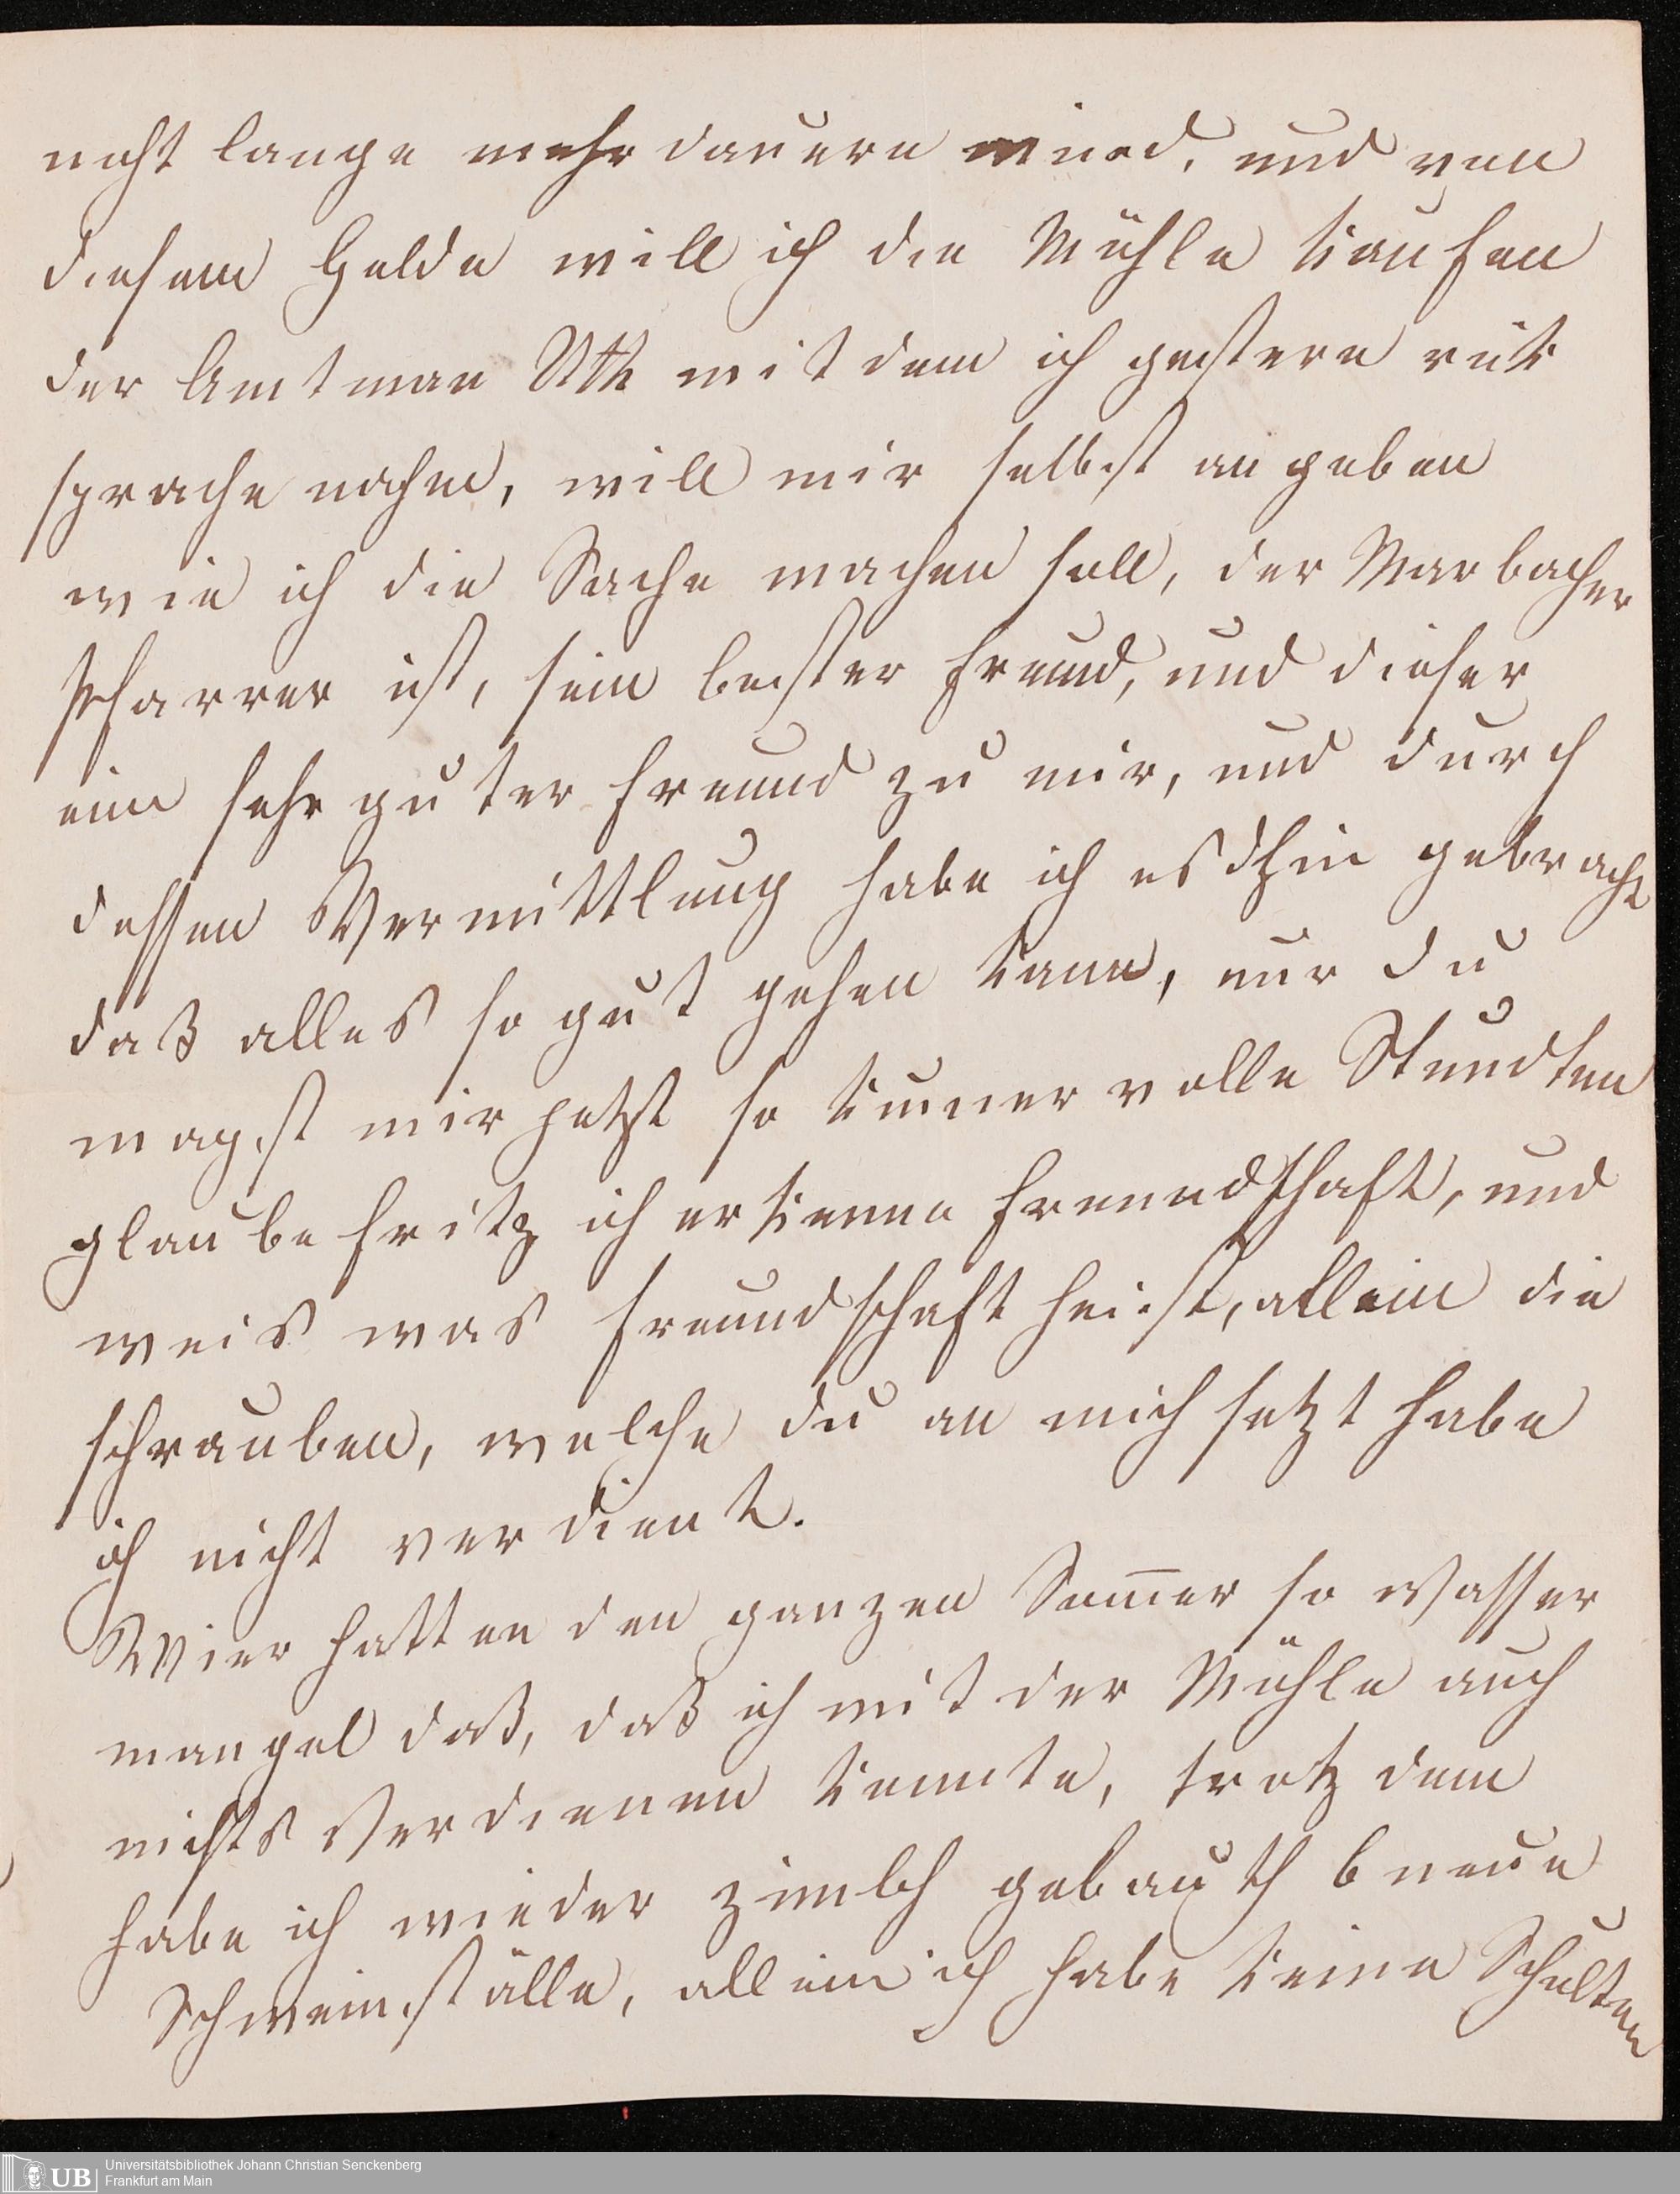 nicht lange mehr dauern wird, und von
diesem Gelde will ich die Mühle kaufen
der Amtman Uth mit dem ich gestern rük
sprache nahm, will mir selbst angeben
wie ich die Sache machen soll, der Marbacher
Pfarrer ist, sein bester Freund, und dieser
ein sehr guter Freund zu mir, und durch
dessen Vermittlung habe ich es dhin gebracht
daß alles so gut gehen kann, nur du
magst mir jetzt so kumervolle Stundten
glaube Fritz ich erkenne Freundschaft, und
weis was Freundschaft heist, allein die
schrauben, welche du an mich setzt habe
ich nicht verdient.
Wier hatten den ganzen Som̅er so Wasser
mangel daß, daß ich mit der Mühle auch
nichts Verdienen konnte, trotz dem
habe ich wieder zimlch gebauth 6 neue
Schweinställe, allein ich habe keine Schulten
UB Universitätsbibliothek Johann Christian Senckenberg
Frankfurt am Main